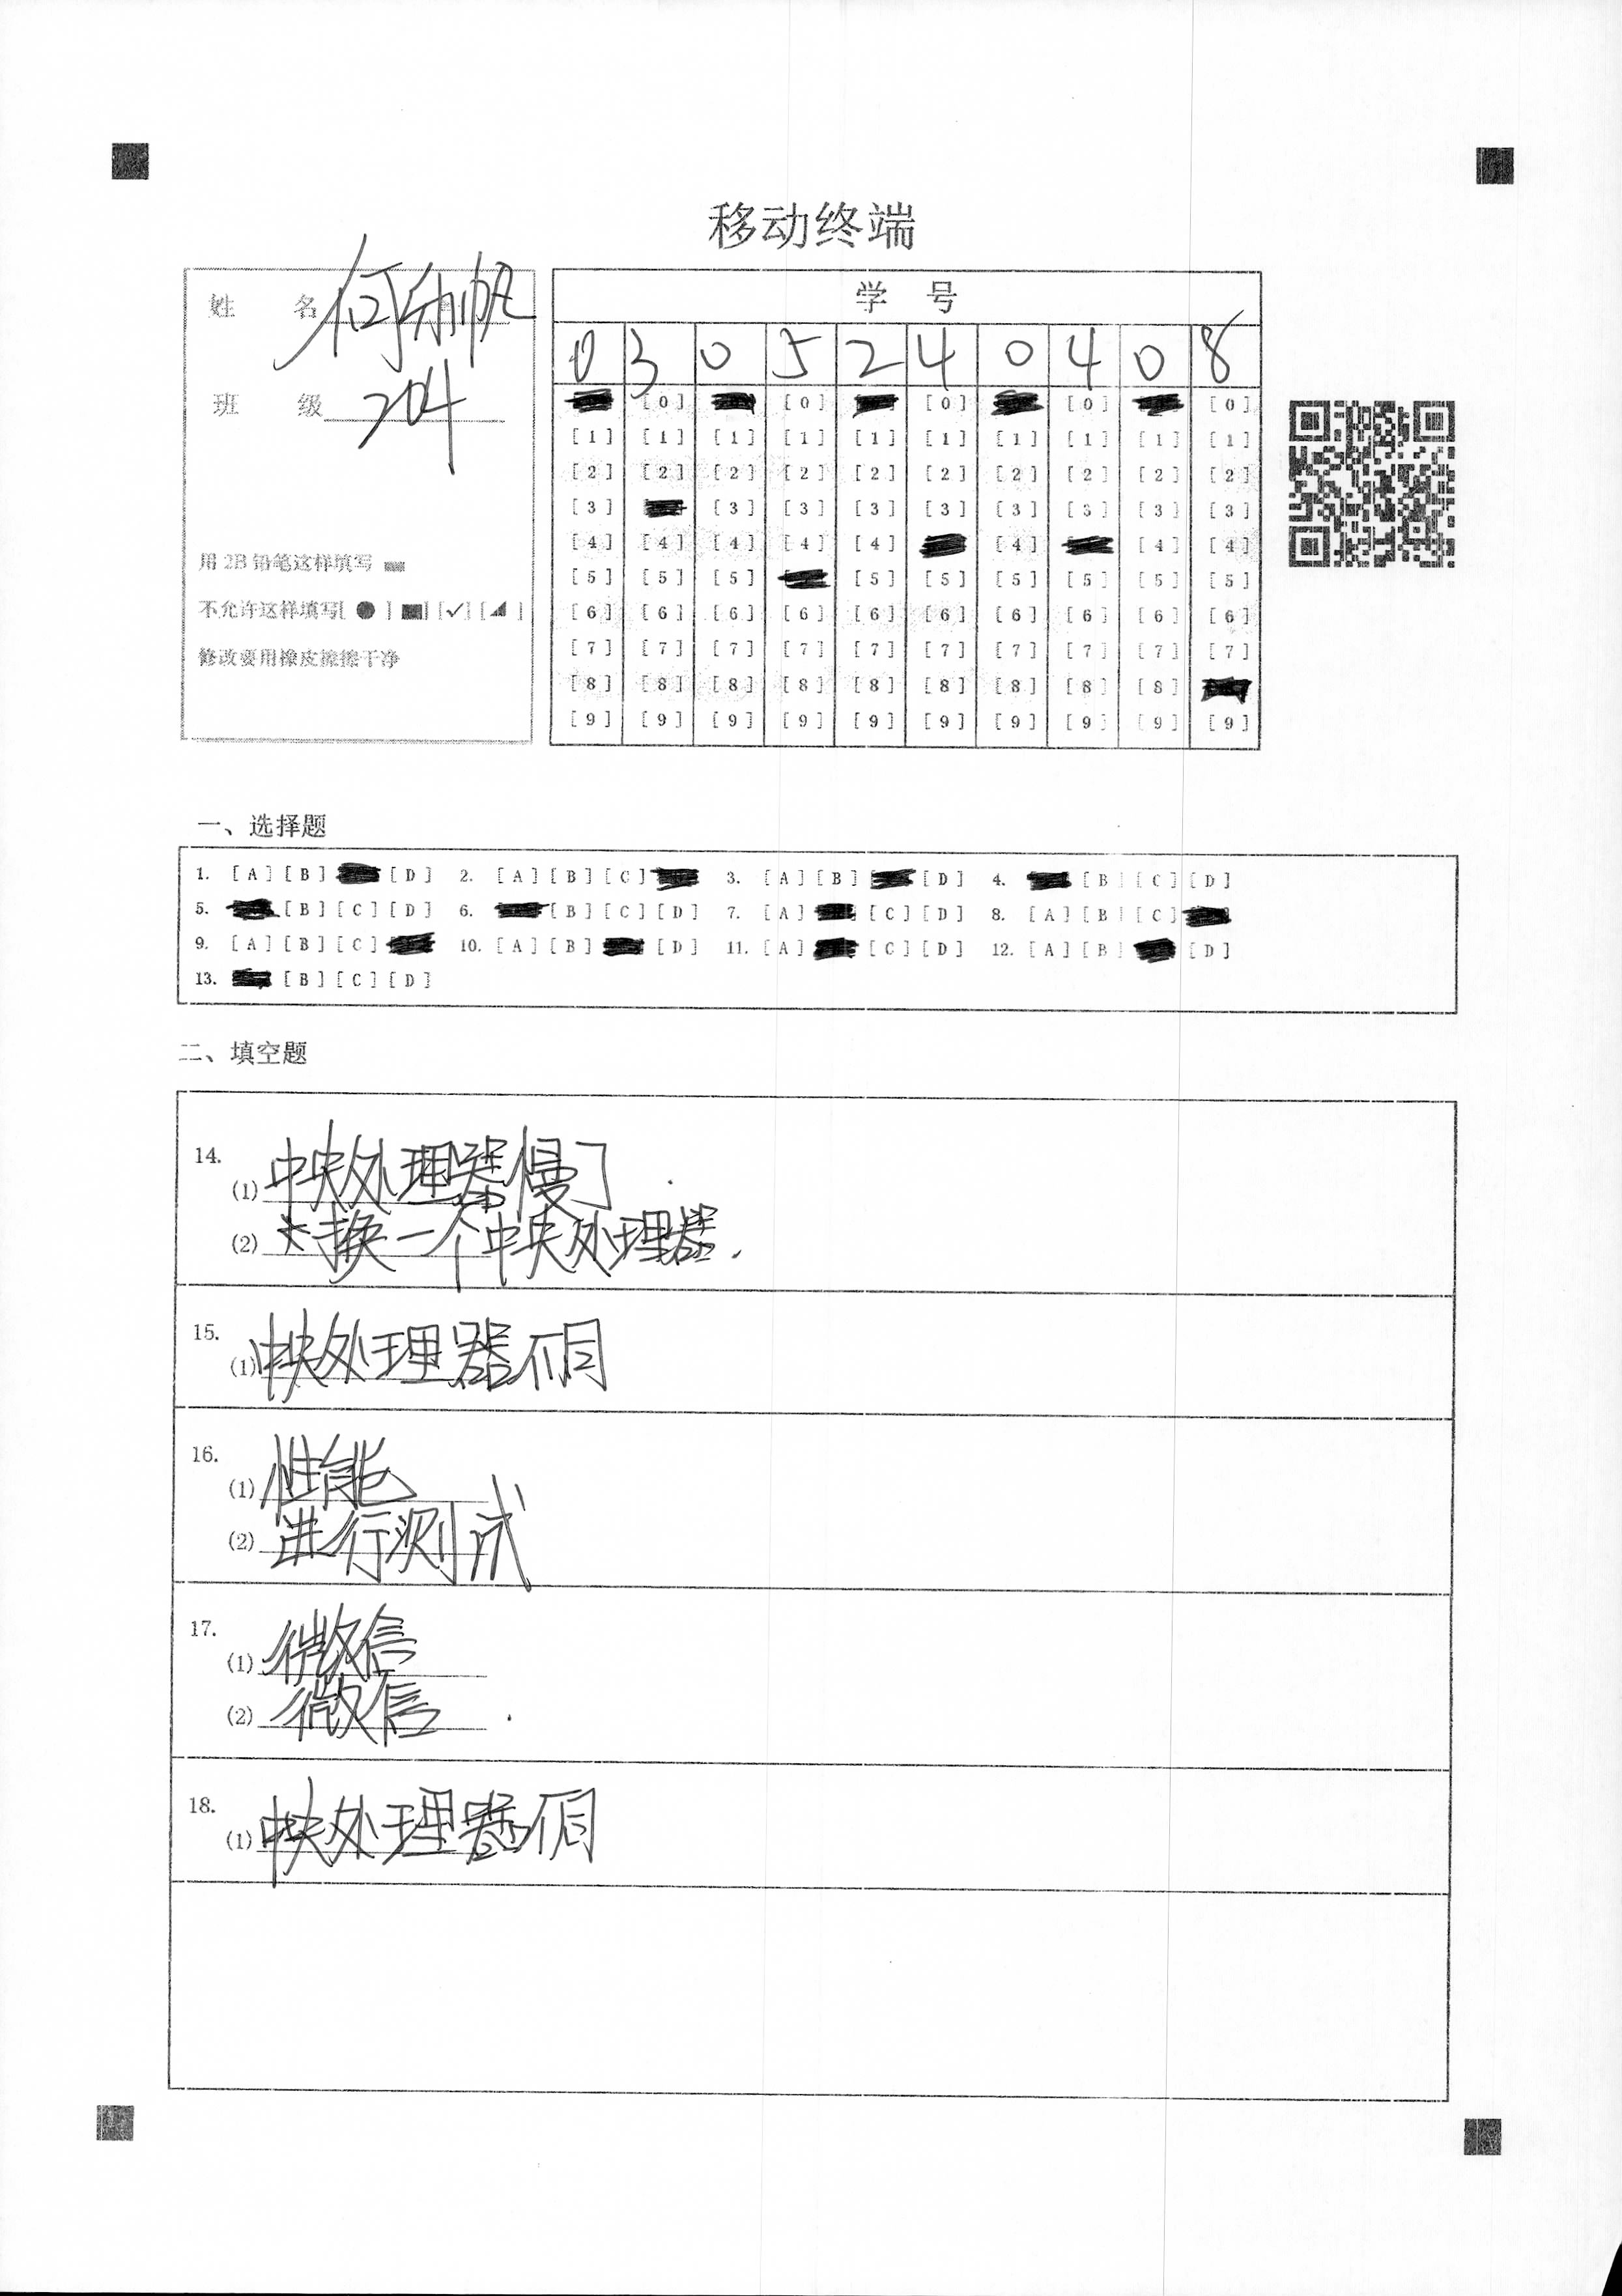 移动终端
姓 名
班 级 204
用 2B 铅笔这样填写
不允许这样填写[ ● ] [■] [✓] [◢ ]
修改要用橡皮擦擦干净
学 号
0 3 0 5 2 4 0 4 0 8
[0] [0] [0] [0] [0]
[1] [1] [1] [1] [1] [1] [1] [1] [1] [1]
[2] [2] [2] [2] [2] [2] [2] [2] [2] [2]
[3] [3] [3] [3] [3] [3] [3] [3] [3]
[4] [4] [4] [4] [4] [4] [4] [4]
[5] [5] [5] [5] [5] [5] [5] [5] [5]
[6] [6] [6] [6] [6] [6] [6] [6] [6] [6]
[7] [7] [7] [7] [7] [7] [7] [7] [7] [7]
[8] [8] [8] [8] [8] [8] [8] [8] [8]
[9] [9] [9] [9] [9] [9] [9] [9] [9] [9]
一、选择题
1. [A] [B] [D] 2. [A] [B] [C] 3. [A] [B] [D] 4. [B] [C] [D]
5. [B] [C] [D] 6. [B] [C] [D] 7. [A] [C] [D] 8. [A] [B] [C]
9. [A] [B] [C] 10. [A] [B] [D] 11. [A] [C] [D] 12. [A] [B] [D]
13. [B] [C] [D]
二、填空题
14.
(1) 中央处理器慢了
(2) 换一个中央处理器.
15.
(1) 中央处理器不同
16.
(1) 性能
(2) 进行测试
17.
(1) 微信
(2) 微信
18.
(1) 中央处理器不同